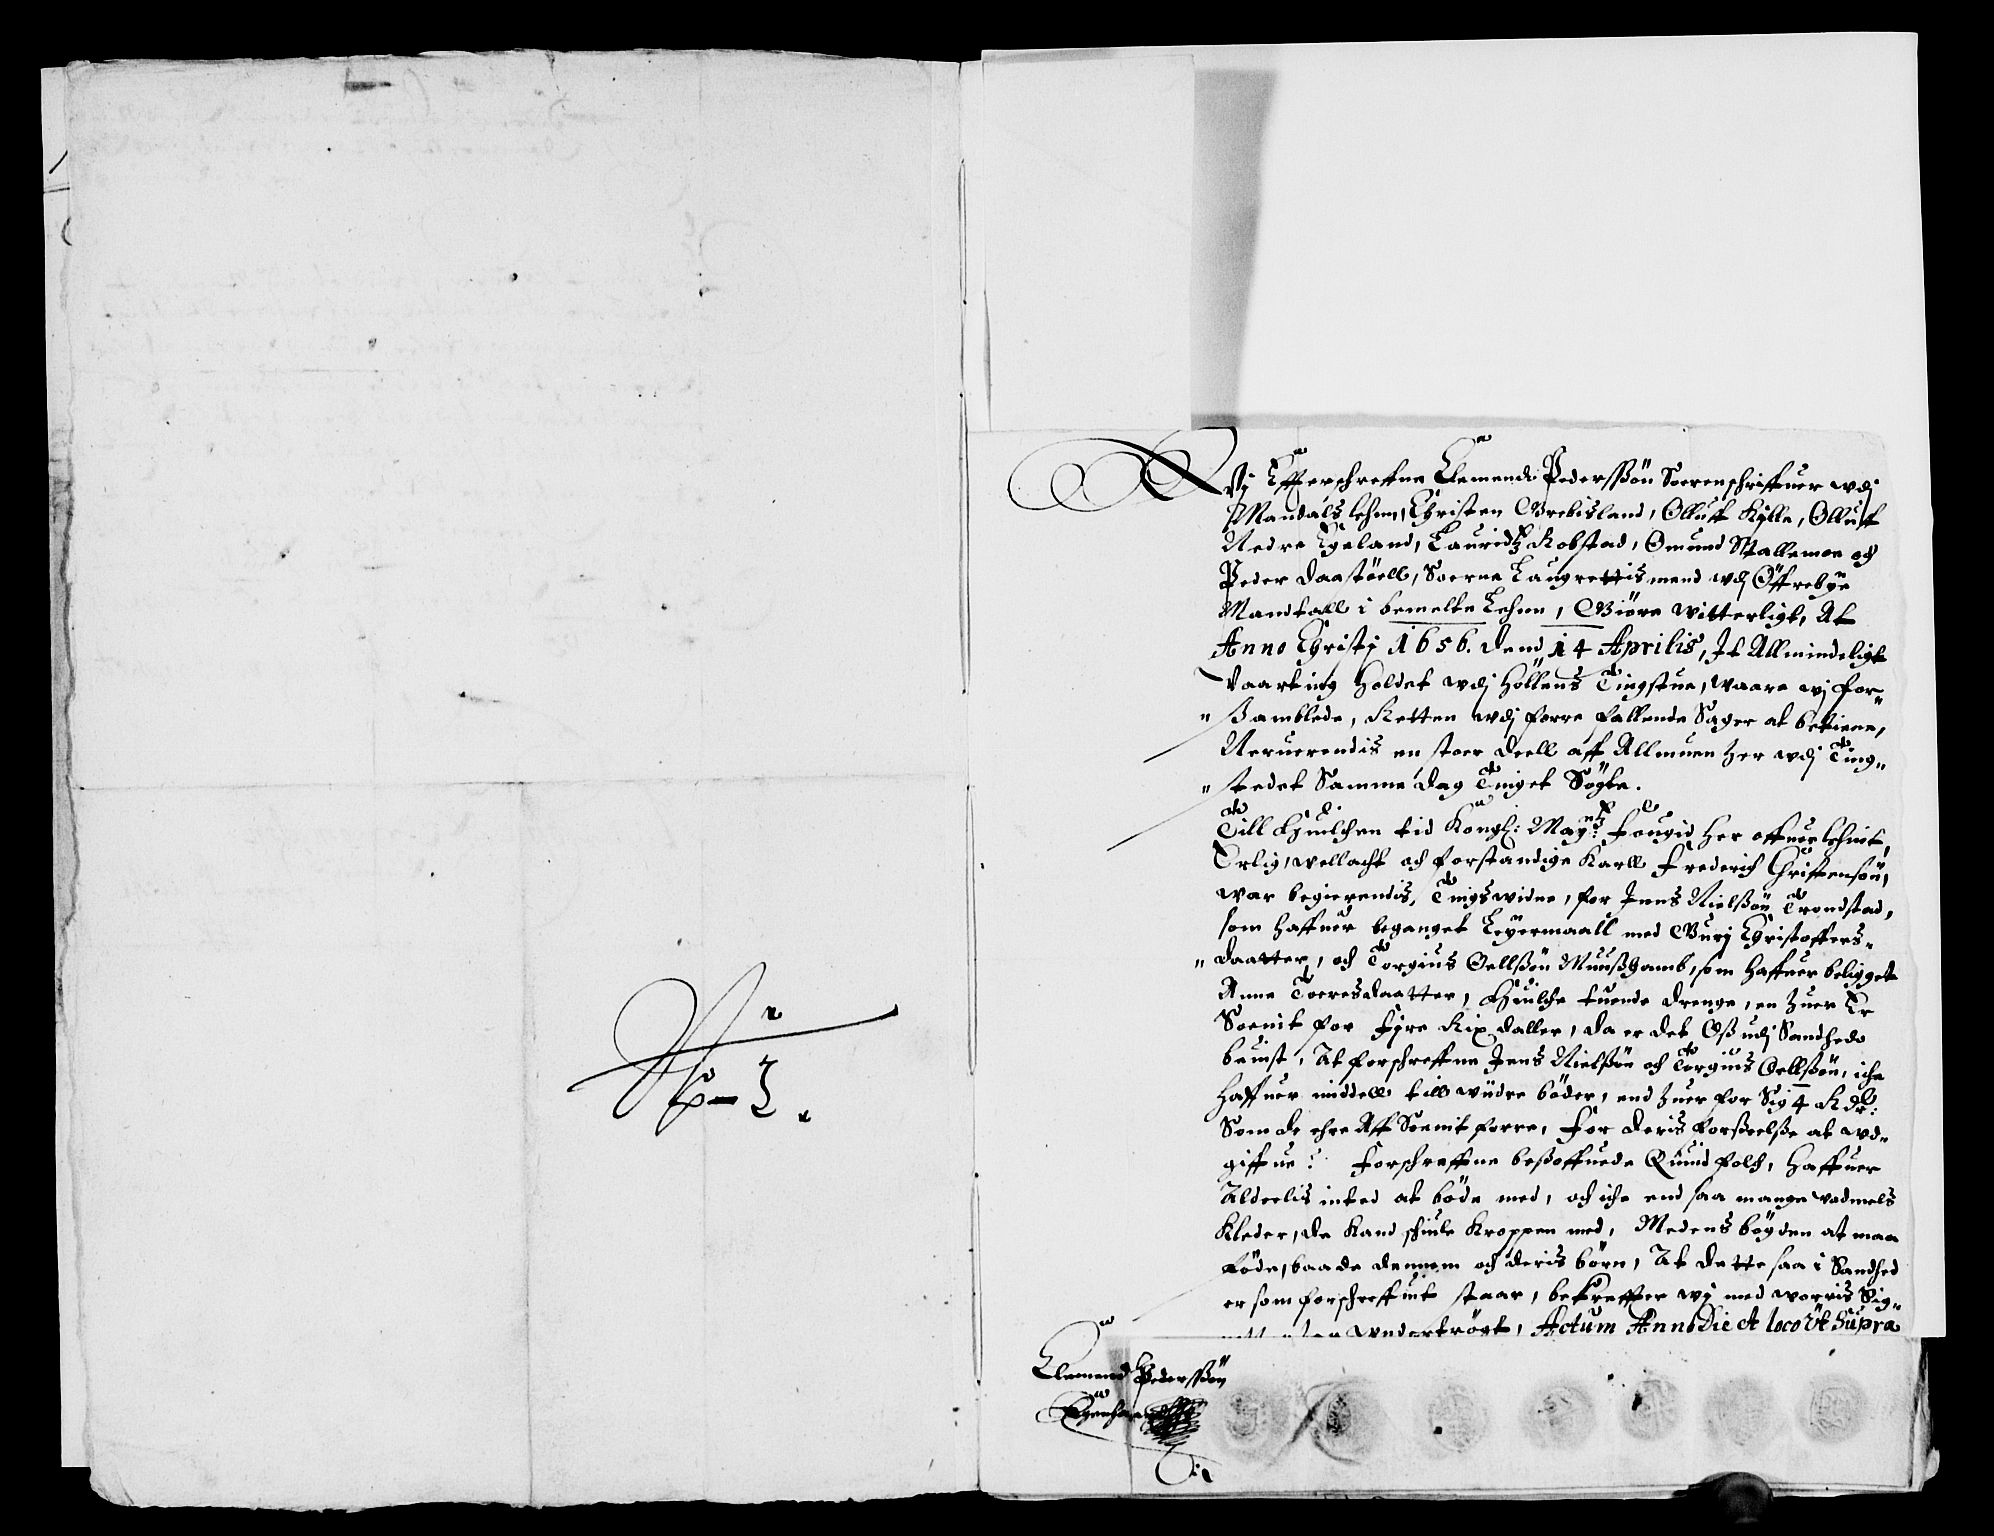 No
2.
Vj Efferschreffne Clemendt Pederssøn Soerenschriffuer wdj
Mandals lehnn, Christen Grebisland, Olluff Kylle, Olluff
Nedre Egeland, Lauridtz Robstad, Omund Stallemoe och
Peder Daastøell, Soerne Laugrettis mend wdj Øffrebye
Mandtall i bemelte Lehnn, Giøre witterligt, At
Anno Christj 1656. Dend 14 Aprilis, It Allmindeligt
Vaarting holdet wdj Høllens Tingstue, waare wj for-
"samblede, Retten wdj forre fallende Sager at betiene,
Neruerendis en stoer deell aff Allmuen her wdj Ting-
"stedet Samme dag Tinget Søgte.
Till huilchen tid Kongl: Maytz: fougid her offuer lehnit,
Erlig, wellacht och forstandige Karll Frederich Christensøn,
war begierendis, Tingswidne, for Jens Nielsøn Trondstad,
som haffuer beganget Leyermaall med Gurj Christoffers-
"daatter, och Torgius Oellsøn Muussgamb, som haffuer beligget
Anne Toeresdaatter, huilche tuende drenge, en huer Er
Soenit for fyre Rix daller, da er det Oss udj Sandhedt
beuist, At forschreffne Jens Nielsøn och Torgius Oellsøn, iche
haffuer middell till widre bøder, end huer for Sig 4 Rdr:
Som de ehre Aff Soenit forre, For deris forseelse at wd-
giffue: forschreffne besoffuede Quindfolch, haffuer
Aldeelis inted at bøde med, och iche end saa mange vadmels
Kleder, de Kand schiule Kroppen med, Medens bøyden at maa
føde, baade dennem och deris børn, At dette saa i Sandhed
er som forschreffuit staar, bekreffter wj med worris Sig-
wndertrøgt, Actum Anno Die et loco Ut Supra
Clemend Pederssøn
Egenhand